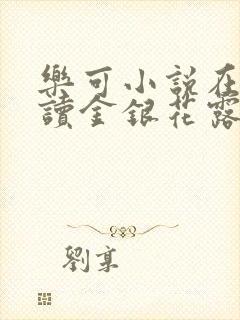 樂可小說在
讀金銀花露
劉葉